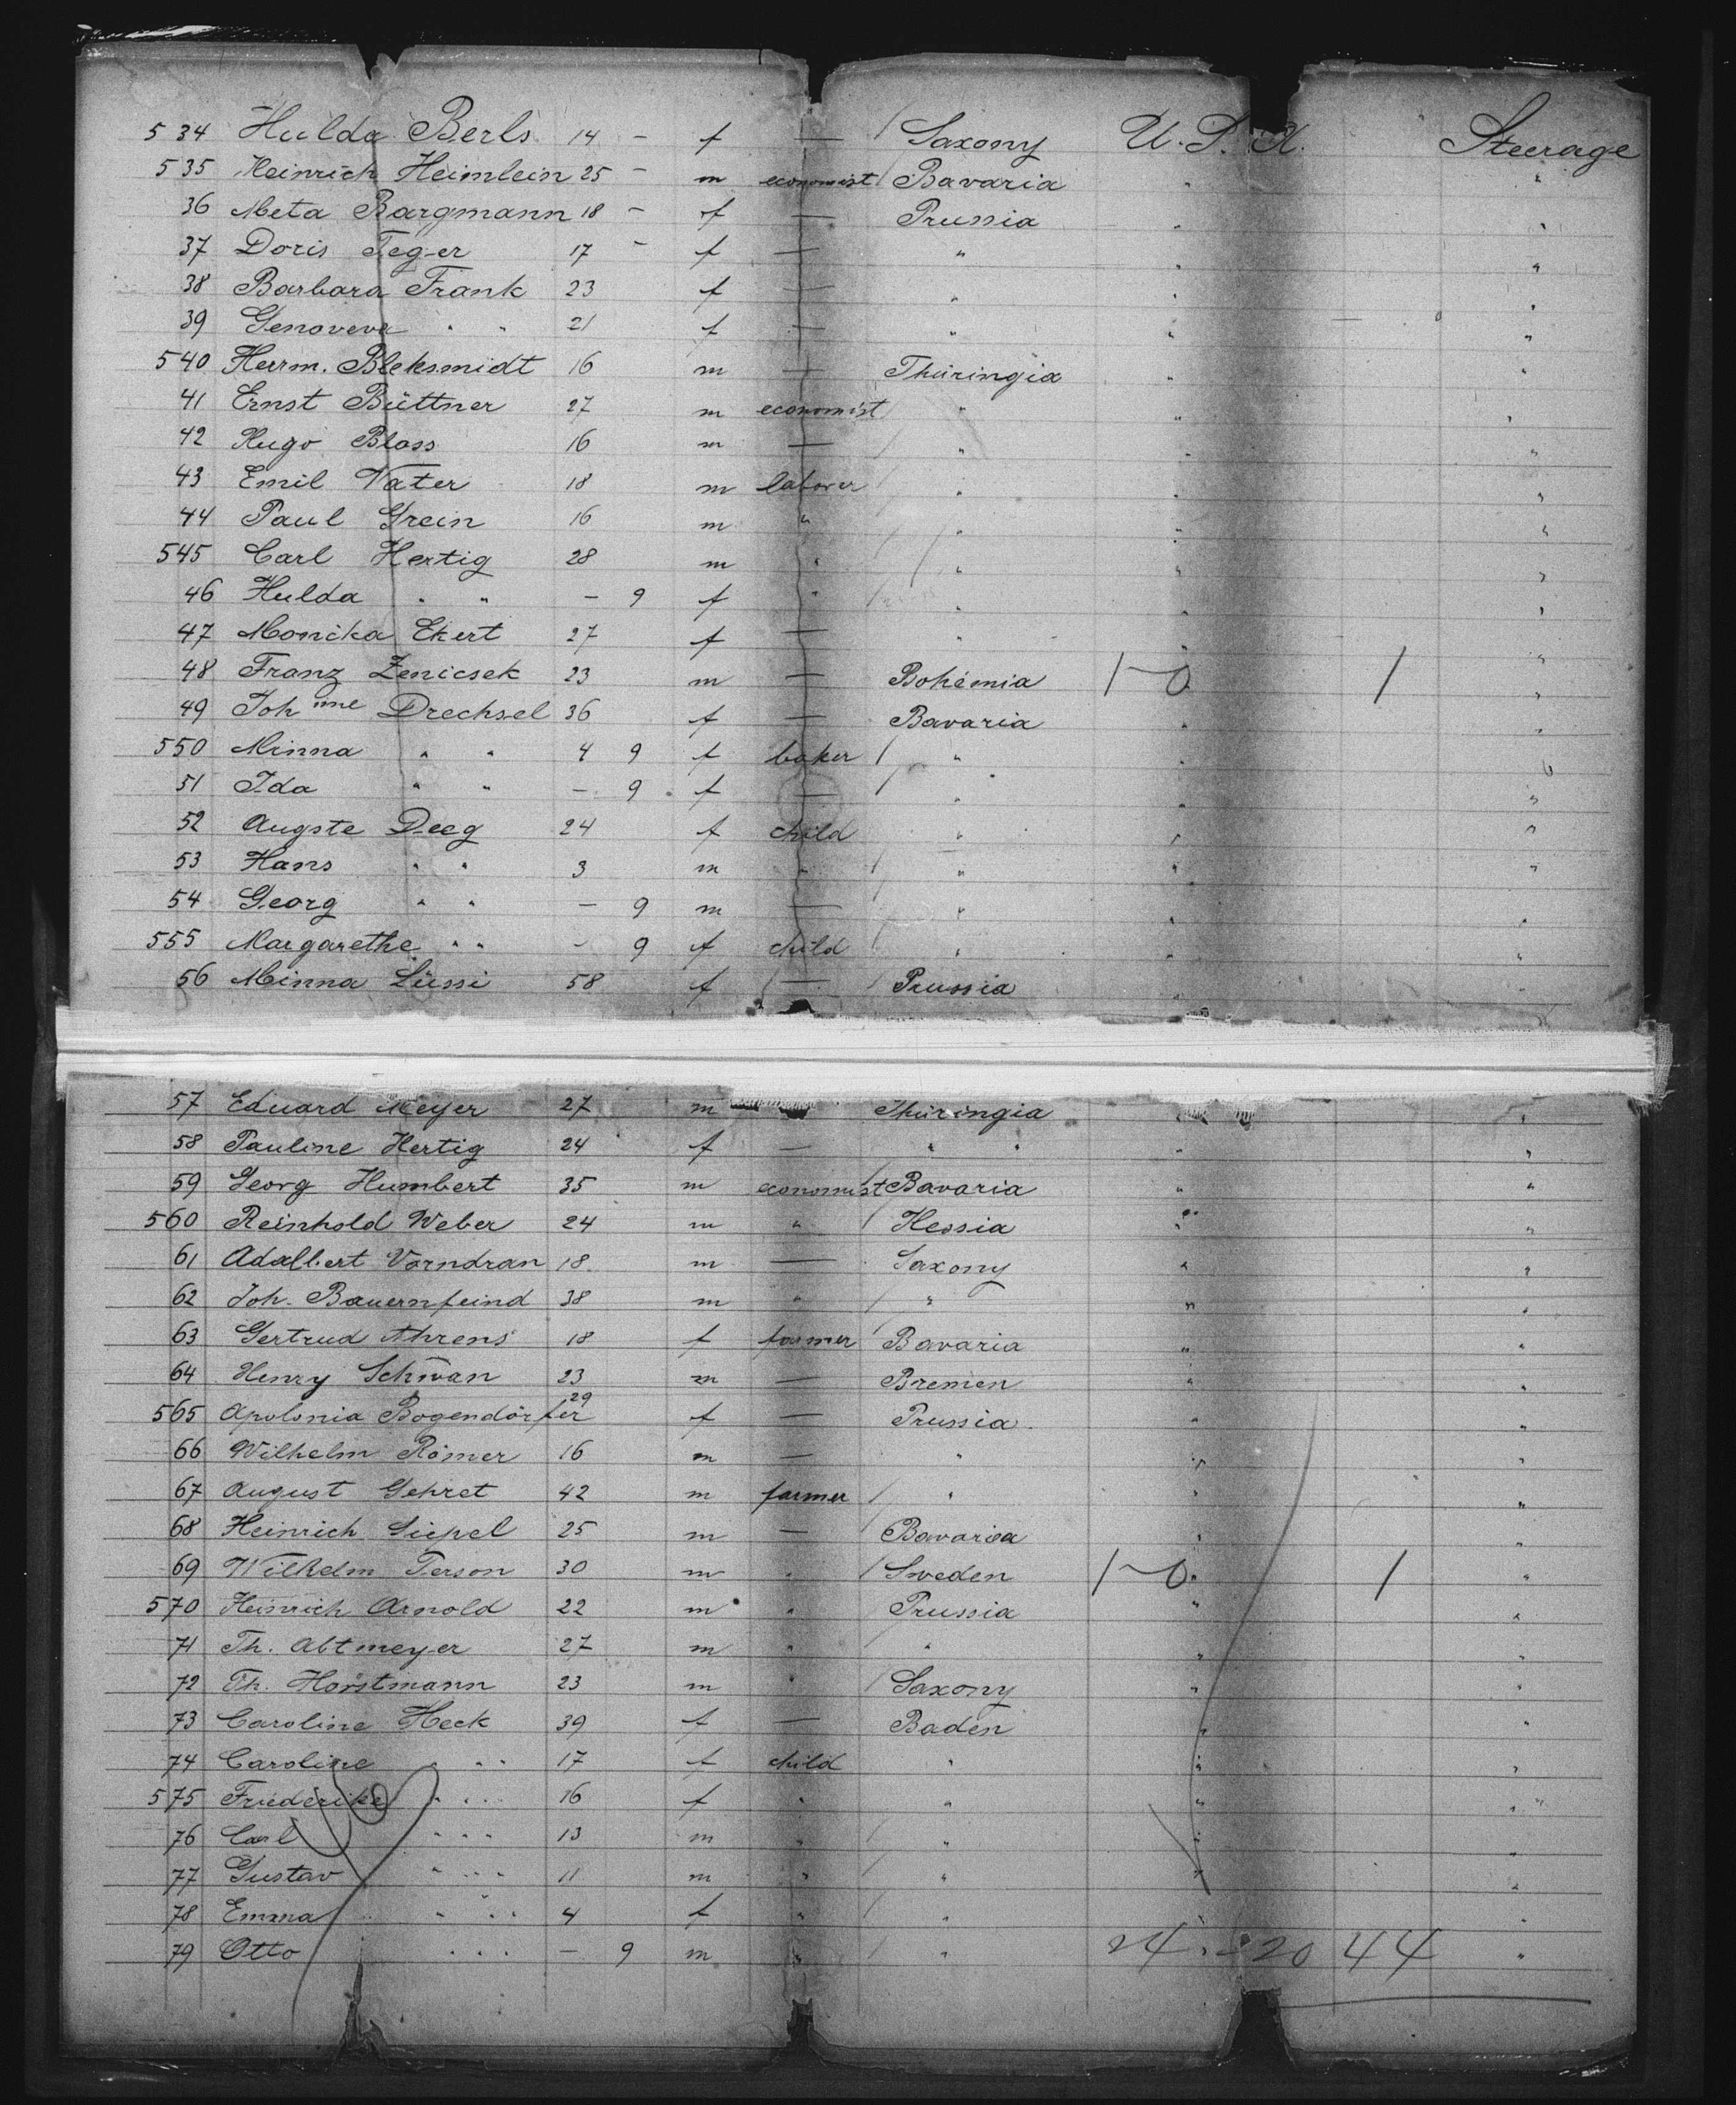 534 Hulda Berls 14 - f — / Saxony U. S. A. Steerage
535 Heinrich Heimlein 25 - m economist / Bavaria " "
36 Meta Bargmann 18 - f — Prussia " "
37 Doris Teger 17 - f — " " "
38 Barbara Frank 23 f — " " "
39 Genoveva " " 21 f — " " "
540 Herrm. Bleksmidt 16 m — Thüringia " "
41 Ernst Büttner 27 m economist / " " "
42 Hugo Blass 16 m — / " " "
43 Emil Vater 18 m laborer / " " "
44 Paul Grein 16 m " " " "
545 Carl Hertig 28 m " / " " "
46 Hulda " " - 9 f " / " " "
47 Monika Ekert 27 f — " " "
48 Franz Zenicsek 23 m — Bohemia 1-0 1 "
49 Joh ine Drechsel 36 f — Bavaria " "
550 Minna " " 4 9 f baker / " " "
51 Ida " " - 9 f — / " " "
52 Augste Deeg 24 f child " " "
53 Hans " " 3 m " / " " "
54 Georg " " - 9 m — / " " "
555 Margarethe " " - 9 f child / " " "
56 Minna Lüssi 58 f — / Prussia " "
57 Eduard Meyer 27 m Thüringia " "
58 Pauline Hertig 24 f — " " "
59 Georg Humbert 35 m economist / Bavaria " "
560 Reinhold Weber 24 m " / Hessia " "
61 Adalbert Vorndran 18 m — Saxony " "
62 Joh. Bauernfeind 38 m " / " " "
63 Gertrud Ahrens 18 f farmer / Bavaria " "
64 Henry Schwan 23 m — Bremen " "
565 Apolonia Bogendörfer 29 f — Prussia " "
66 Wilhelm Römer 16 m — " " "
67 August Gehret 42 m farmer / " " "
68 Heinrich Siepel 25 m — / Bavaria " "
69 Wilhelm Person 30 m " / Sweden 1-0 " 1 "
570 Heinrich Arnold 22 m " Prussia " "
71 Th. Abtmeyer 27 m " / " " "
72 Th. Horstmann 23 m " / Saxony " "
73 Caroline Heck 39 f — Baden " "
74 Caroline " " 17 f child " " "
575 Friederike " " 16 f " " " "
76 Carl " " 13 m " / " " "
77 Gustav " " 11 m " / " " "
78 Emma " " 4 f " / " " "
79 Otto " " - 9 m " / " 24 - 20 44 "